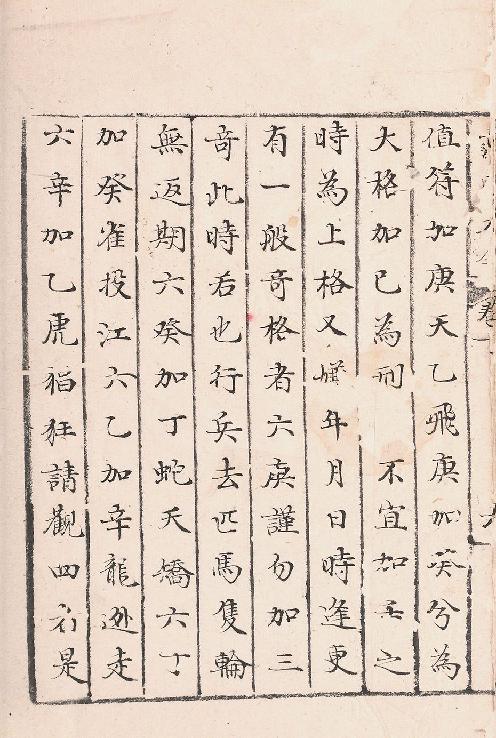 值符加庚天乙飛庚加癸兮為
大格加己為刑 不宜加之
時為上格又嫌年月日時逢更
有一般奇格者六庚謹勿加三
奇此時若也行兵去匹馬隻輪
無返期六癸加丁蛇夭矯六丁
加癸雀投江六乙加辛龍逃走
六辛加乙虎猖狂請觀四者是